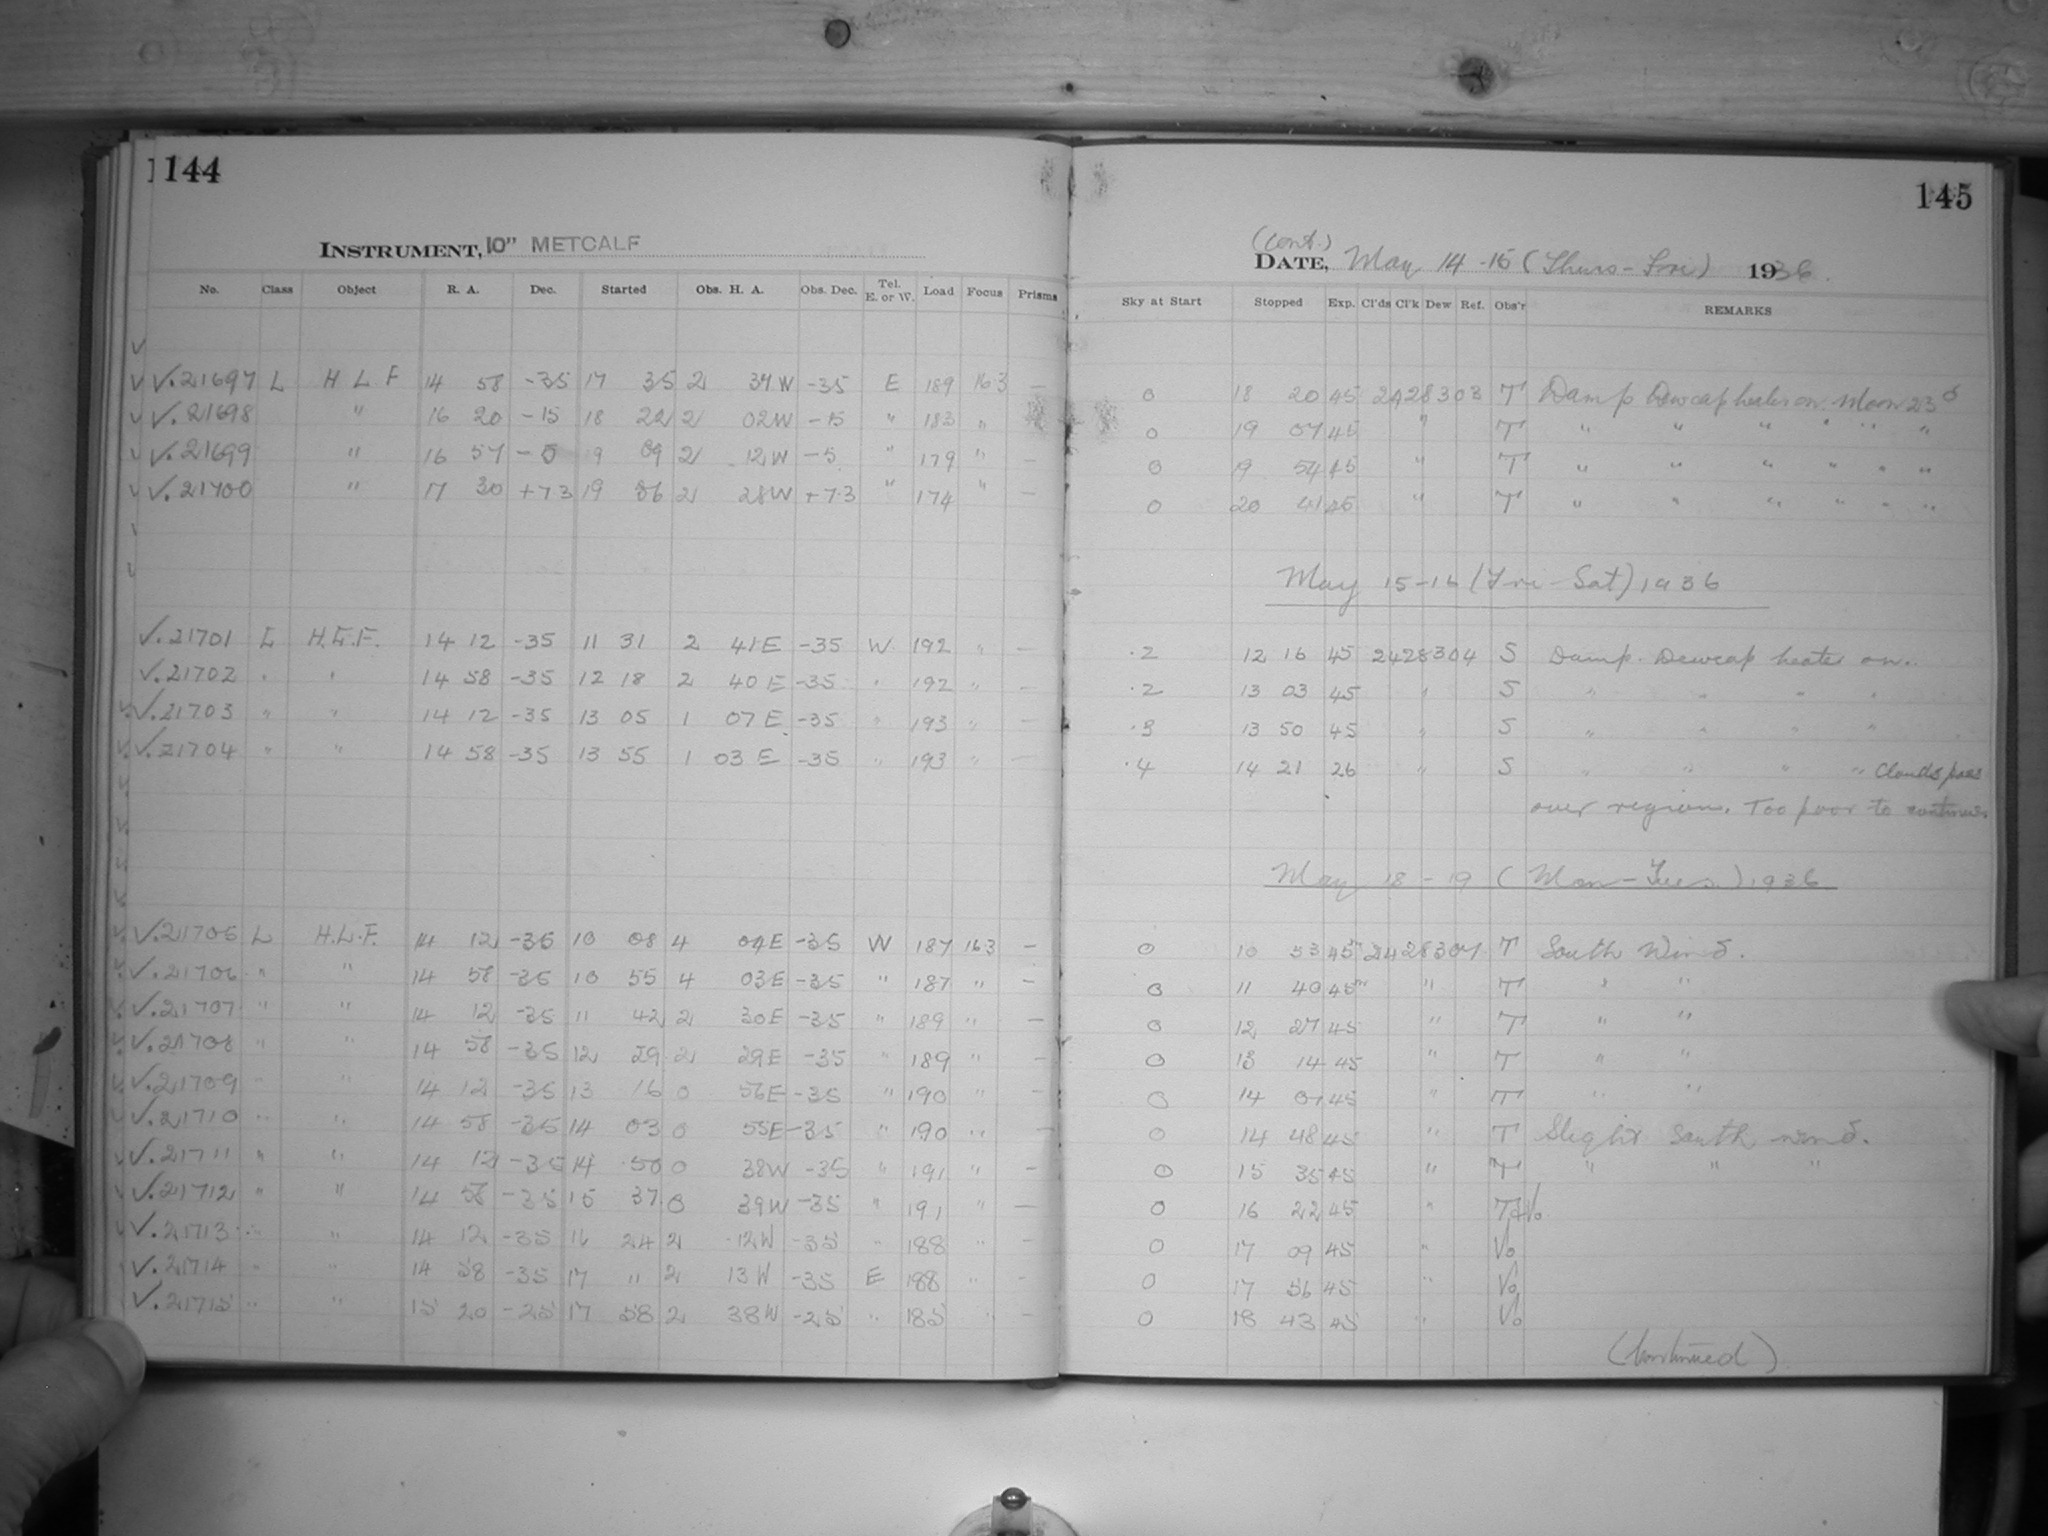 144
INSTRUMENT, 10" METCALF
No. Class Object R. A. Dec. Started Obs. H. A. Obs. Dec. Tel. E. or W. Load Focus Prisms
√.21697 L H L F 14 58 -35 17 35 2 34W -35 E 189 163 —
√.21698 " 16 20 -15 18 22 2 02W -15 " 183 "
√.21699 " 16 57 -5 19 09 2 12W -5 " 179 " —
√.21700 " 17 30 +7.3 19 56 2 28W +7.3 " 174 " —
√.21701 L H.L.F. 14 12 -35 11 31 2 41E -35 W 192 " —
√.21702 " " 14 58 -35 12 18 2 40E -35 " 192 " —
√.21703 " " 14 12 -35 13 05 1 07E -35 " 193 " —
√.21704 " " 14 58 -35 13 55 1 03E -35 " 193 " —
√.21705 L H.L.F. 14 12 -35 10 08 4 04E -35 W 187 163 —
√.21706 " " 14 58 -35 10 55 4 03E -35 " 187 " —
√.21707 " " 14 12 -35 11 42 2 30E -35 " 189 " —
√.21708 " " 14 58 -35 12 29 2 29E -35 " 189 " —
√.21709 " " 14 12 -35 13 16 0 56E -35 " 190 " —
√.21710 " " 14 58 -35 14 03 0 55E -35 " 190 " —
√.21711 " " 14 12 -35 14 50 0 38W -35 " 191 " —
√.21712 " " 14 58 -35 15 37 0 39W -35 " 191 " —
√.21713 " " 14 12 -35 16 24 2 12W -35 " 188 " —
√.21714 " " 14 58 -35 17 11 2 13W -35 E 188 " —
√.21715 " " 15 20 -25 17 58 2 38W -25 " 185 " —
145
(Cont.)
DATE, May 14-15 (Thurs-Fri) 1936.
Sky at Start Stopped Exp. Cl'ds Cl'k Dew Ref. Obs'r REMARKS
0 18 20 45 2428303 T Damp Dewcap heater on. Moon 23d
0 19 07 45 " T " " " " " "
0 19 54 45 " T " " " " " "
0 20 41 45 " T " " " " " "
May 15-16 (Fri-Sat) 1936
.2 12 16 45 2428304 S Damp. Dewcap heater on.
.2 13 03 45 " S " " " "
.3 13 50 45 " S " " " "
.4 14 21 26 " S " " " " Clouds pass
over region. Too poor to continue.
May 18-19 (Mon-Tues.) 1936
0 10 53 45m 2428307 T South Wind.
0 11 40 45m " T " "
0 12 27 45 " T " "
0 13 14 45 " T " "
0 14 01 45 " T " "
0 14 48 45 " T Slight South wind.
0 15 35 45 " T " " "
0 16 22 45 " T+Vo
0 17 09 45 " Vo
0 17 56 45 " Vo
0 18 43 45 " Vo
(Continued)